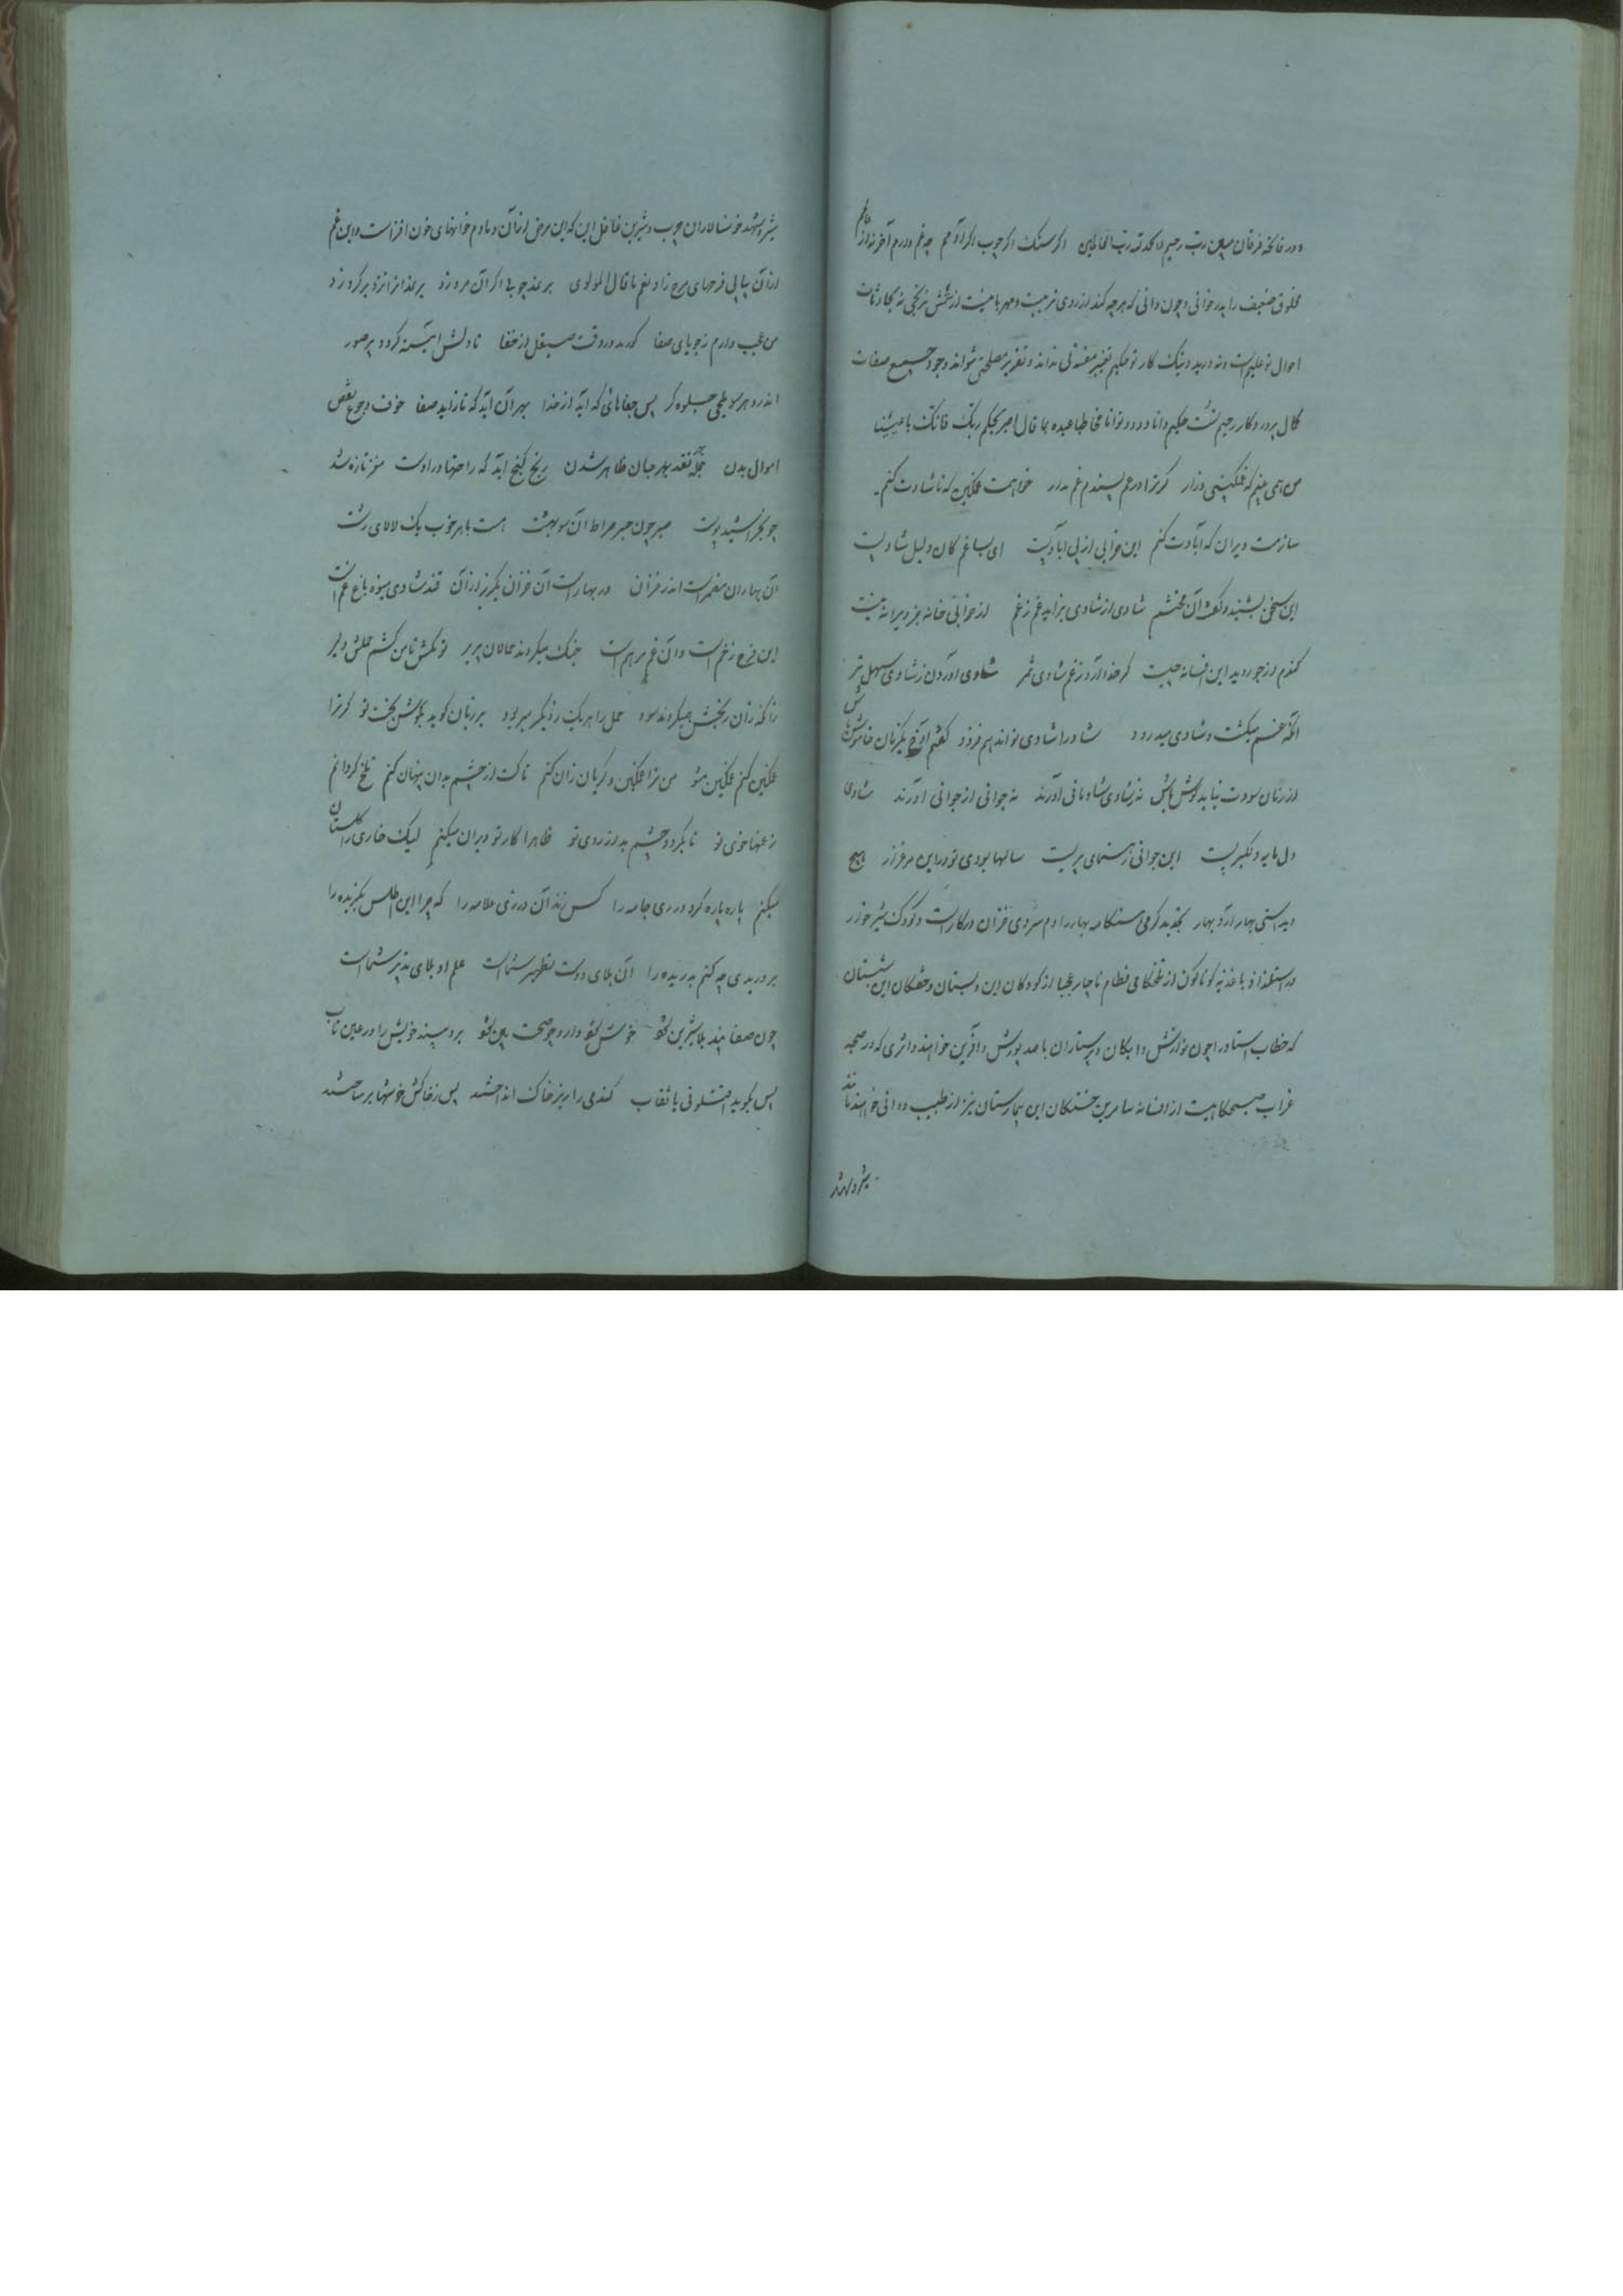 و در فاتحه فرقان مبین رب رحیم الحمد لله رب العالمین اگر سنگ اگر چوب اگر آدمیم چه غم دارم آخر نه از عالم
مخلوق ضعیف را پدر خوانی و چون دانی که هرچه کند از روی تربیت و مهربانیست از خشمش نرنجی نه بکارت
احوال تو علیم است و نه در بد و نیک کار تو حکیم تغییر مفسدتی نداند و تقریر مصلحتی نتواند وجود جمیع صفات
کمال پروردگار رحیم تست حکیم و دانا و توانا مخاطبا عبده بما قال اصبر لحکم ربک فانک باعیننا
من همی بینم که غمگینی و زار گر ترا در غم پسندم غم مدار خواهمت غمگین که تا شادت کنم
سازمت ویران که آبادت کنم این خرابی از پی آبادیست ای بسا غم کان دلیل شادیست
این سخن بشنید و گفت آن محتشم شادی از شادی بزاید غم ز غم از خرابی خانه جز ویرانه نیست
گندم از جو روید این افسانه چیست گر خدا آرد ز غم شادی ثمر شادی آوردن ز شادی سهل تر
آنکه غم میکشت و شادی میدرود شاد را شادی تواند هم فزود گفتم یکزمان خاموش باش
از زبان سودت نیاید گوش باش نه ز شادی شادمانی آورند نه جوانی از جوانی آورند شادی
دل مایه دلگیریست این جوانی رهنمای پیریست سالها بودی تو در این مرغزار هیچ
دیدستی بهار آرد بهار گرمی هنگامه بهار را دم سردی خزان درکارست و کودک شیرخوار
در استلذاذ باغذیه گوناگون از تلخکامی فطام ناچار عجبا از کودکان این دبستان و خفتگان این شبستان
که خطاب استاد را چون نوازش دایگان و پرستاران با صد پوزش و آفرین خواهند و اثری که در صیحه
غراب صبحگاهیست از افسانه سامرین خستگان این بیمارستان نیز از طبیب دوائی خواهند مانند
شیر و شهد
شیر و شهد خوانسالاران چرب و شیرین غافل این که این مرض از آن دمادم خوانهای خون افزاست و این غم
از آن پیاپی فرحهای فرح زاد نعم ما قال المولوی بر نمد چوبی اگر آن مرد زد بر نمد آنرا نزد بر گرد زد
من عجب دارم ز جویای صفا کو رمد در وقت صیقل از جفا تا دلش آئینه گردد پر صور
اندرو هر سو جلوه گر پس جفاهائی که آید از خدا بهر آن آید که تا زاید صفا خوف و جوع و نقص
اموال بدن جمله نقد بهر جان ظاهر شدن رنج گنج آید که راحتها در اوست مغز تازه شد
چو بخراشید پوست صبر چون جسر صراط آن سو بهشت هست با هر خوب یک لالای زشت
آن بهاران مضمرست اندر خزان در بهارست آن خزان مگریز از آن قند شادی میوه باغ غم است
این فرح زخم است و آن غم مرهم است جنگ میکردند حمالان پریر تو مکش تا من کشم حملش دلیر
زانکه زان رنجش همیکردند سود حمل را هر یک ز دیگر میربود هر زمان گوید بگوش بخت تو گر ترا
غمگین کنم غمگین مشو من ترا غمگین و گریان زان کنم تا کت از چشم بدان پنهان کنم تلخ گردانم
ز غمها خوی تو تا بگردد چشم بد از روی تو ظاهرا کار تو ویران میکنم لیک خاری را گلستان
میکنم پاره پاره کرد درزی جامه را کس زند آن درزی علامه را که چرا این اطلس بگزیده را
بر دریدی چه کنم بدریده را آن بلای دوست تطهیر شماست علم او بالای تدبیر شماست
چون صفا بیند بلا شیرین شود خوش شود دارو چو صحت بین شود برد بیند خویش را در عین مات
پس بگوید اقتلونی یا ثقات گندمی را زیر خاک انداختند پس ز خاکش خوشها برساختند